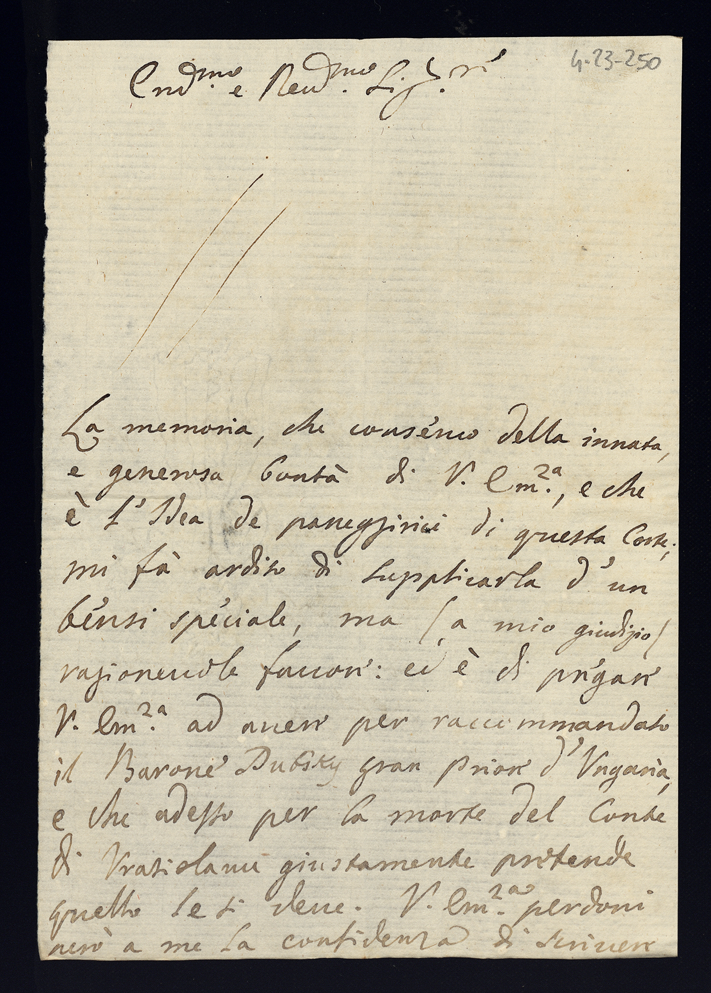 4-23-250
Em.mo e Rev.mo Sig.r
La memoria, che conservo della innata,
e generosa bontà di V. Em.za, e che
è l'Idea de panegirici di questa Corte;
mi fà ardito di supplicarla d'un
bensi speciale, ma (a mio giudizio)
ragionevole favore: ed è di pregare
V. Em.za ad avere per raccommandato
il Barone Dubsky gran Prior d'Ungaria,
e che adesso per la morte del Conte
di Vratislavu giustamente pretende
quello le si deve. V. Em.za perdoni
però a me la confidenza di scrivere